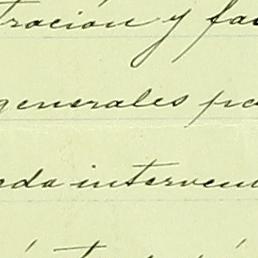 tración y fa
generales pa
eda interven